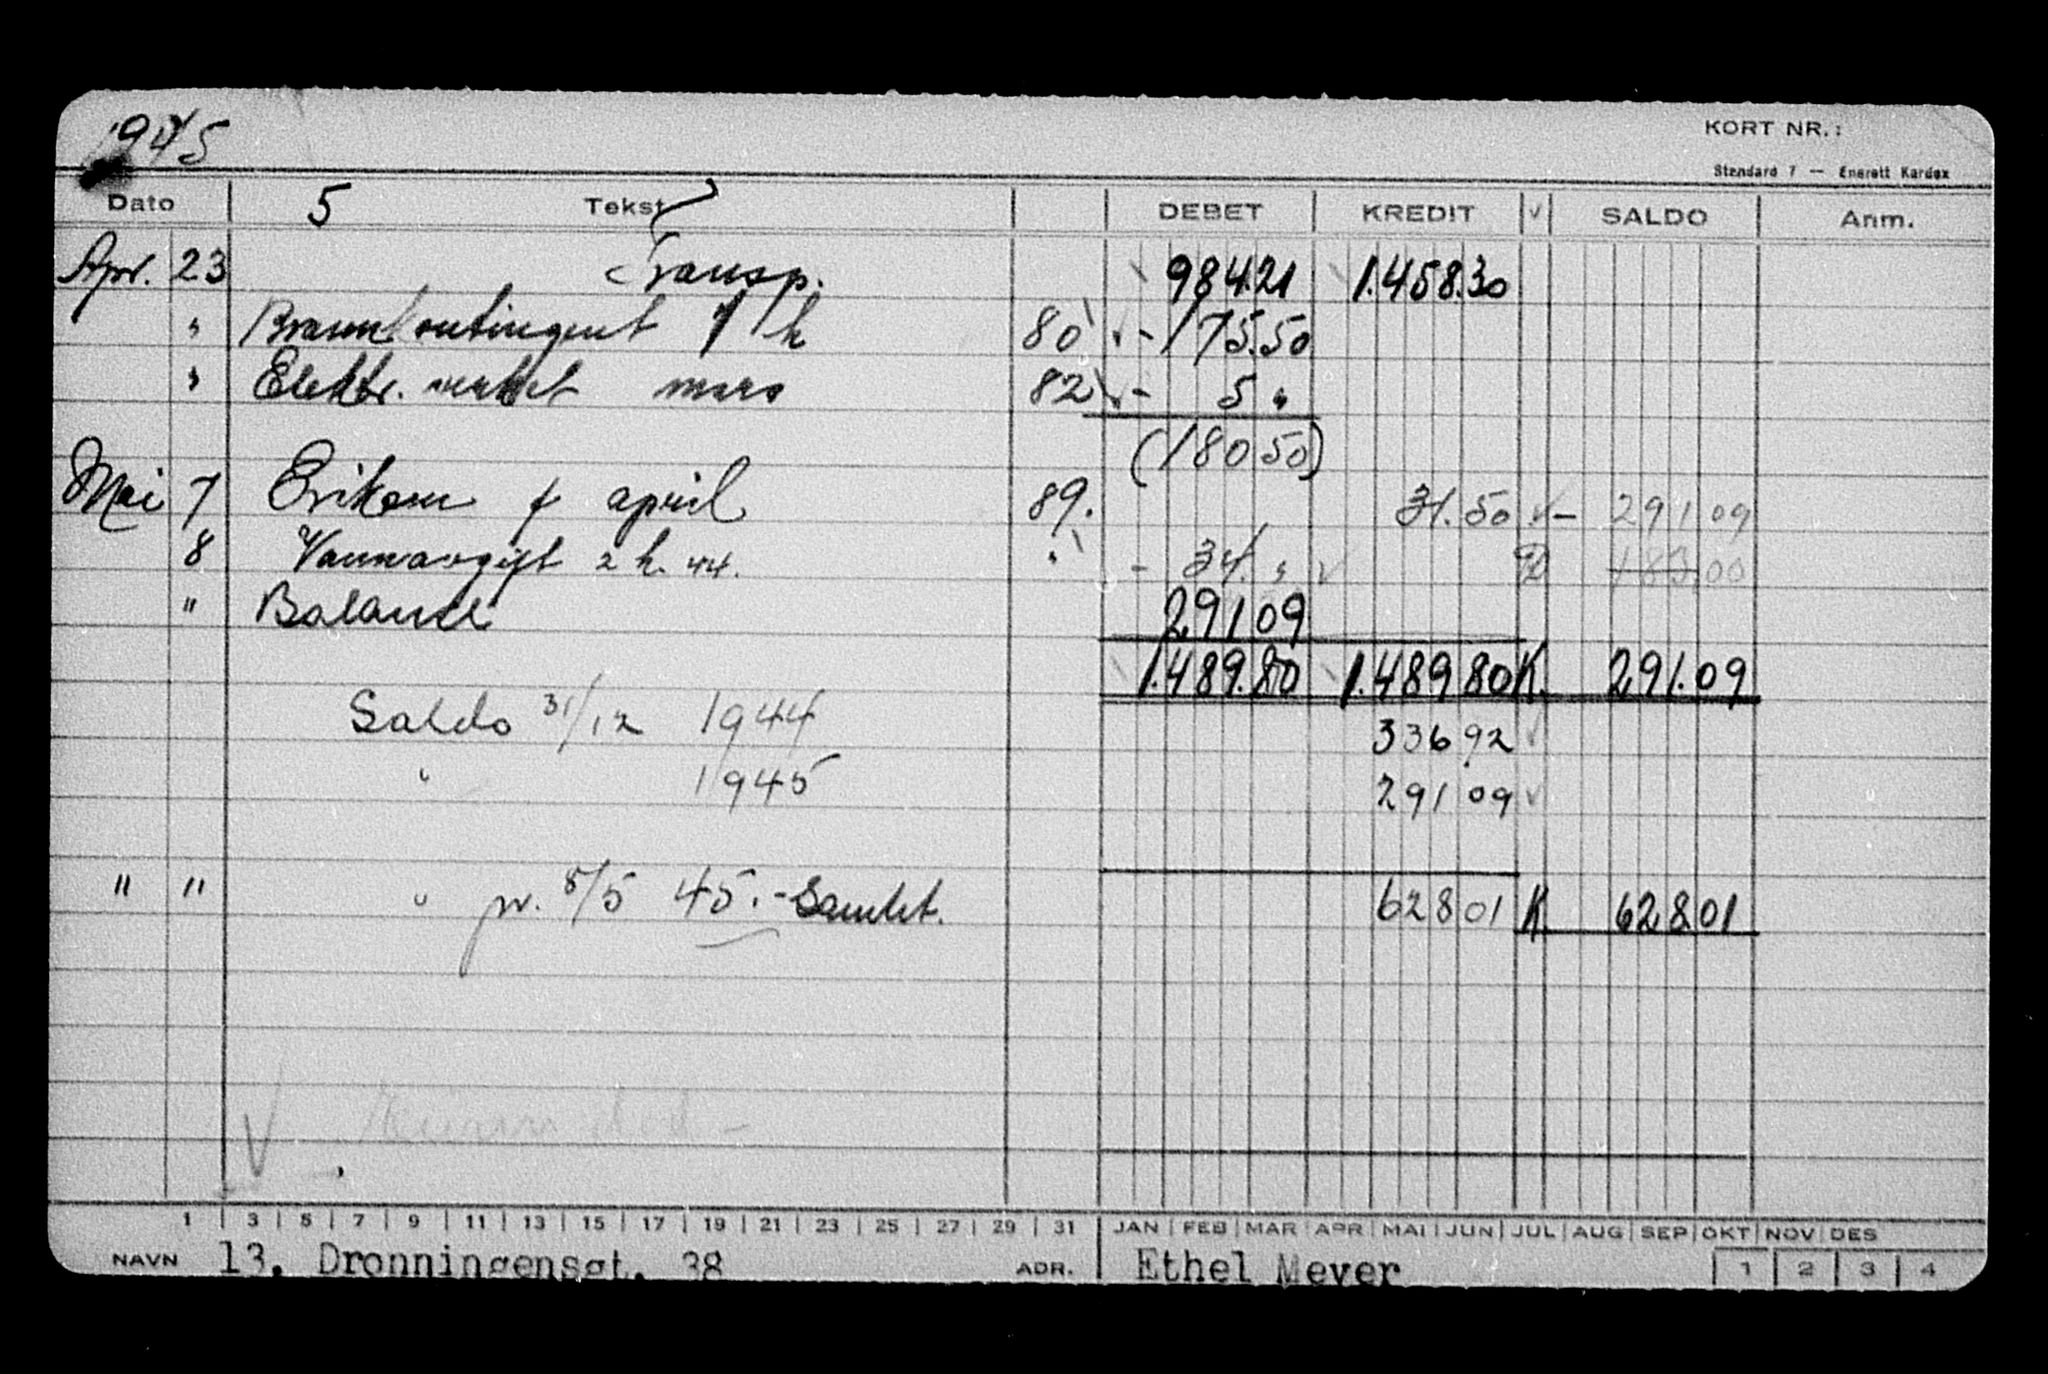 1945
KORT NR.:
Standard 7 — Enerett Kardex
Dato 5 Tekst DEBET KREDIT √ SALDO Anm.
Apr. 23 Transp. 984.21 1.458.30
" Brannkontingent 1 h 80 - 175.50
" Elektr. verket mars 82 - 5 "
(180 50)
Mai 7 f april 89. 31.50 - 291 09
8 Vannavgift 2 h. 44. " - 34. "
" Balance 291 09
1.489.80 1.489 80 K. 291.09
Saldo 31/12 1944 336 92
" 1945 291 09
" " " pr. 8/5 45. - Samlet. 628 01 K. 628.01
1 3 5 7 9 11 13 15 17 19 21 23 25 27 29 31 JAN FEB MAR APR MAI JUN JUL AUG SEP OKT NOV DES
NAVN 13, Dronningensgt. 38 ADR. Ethel Meyer 1 2 3 4